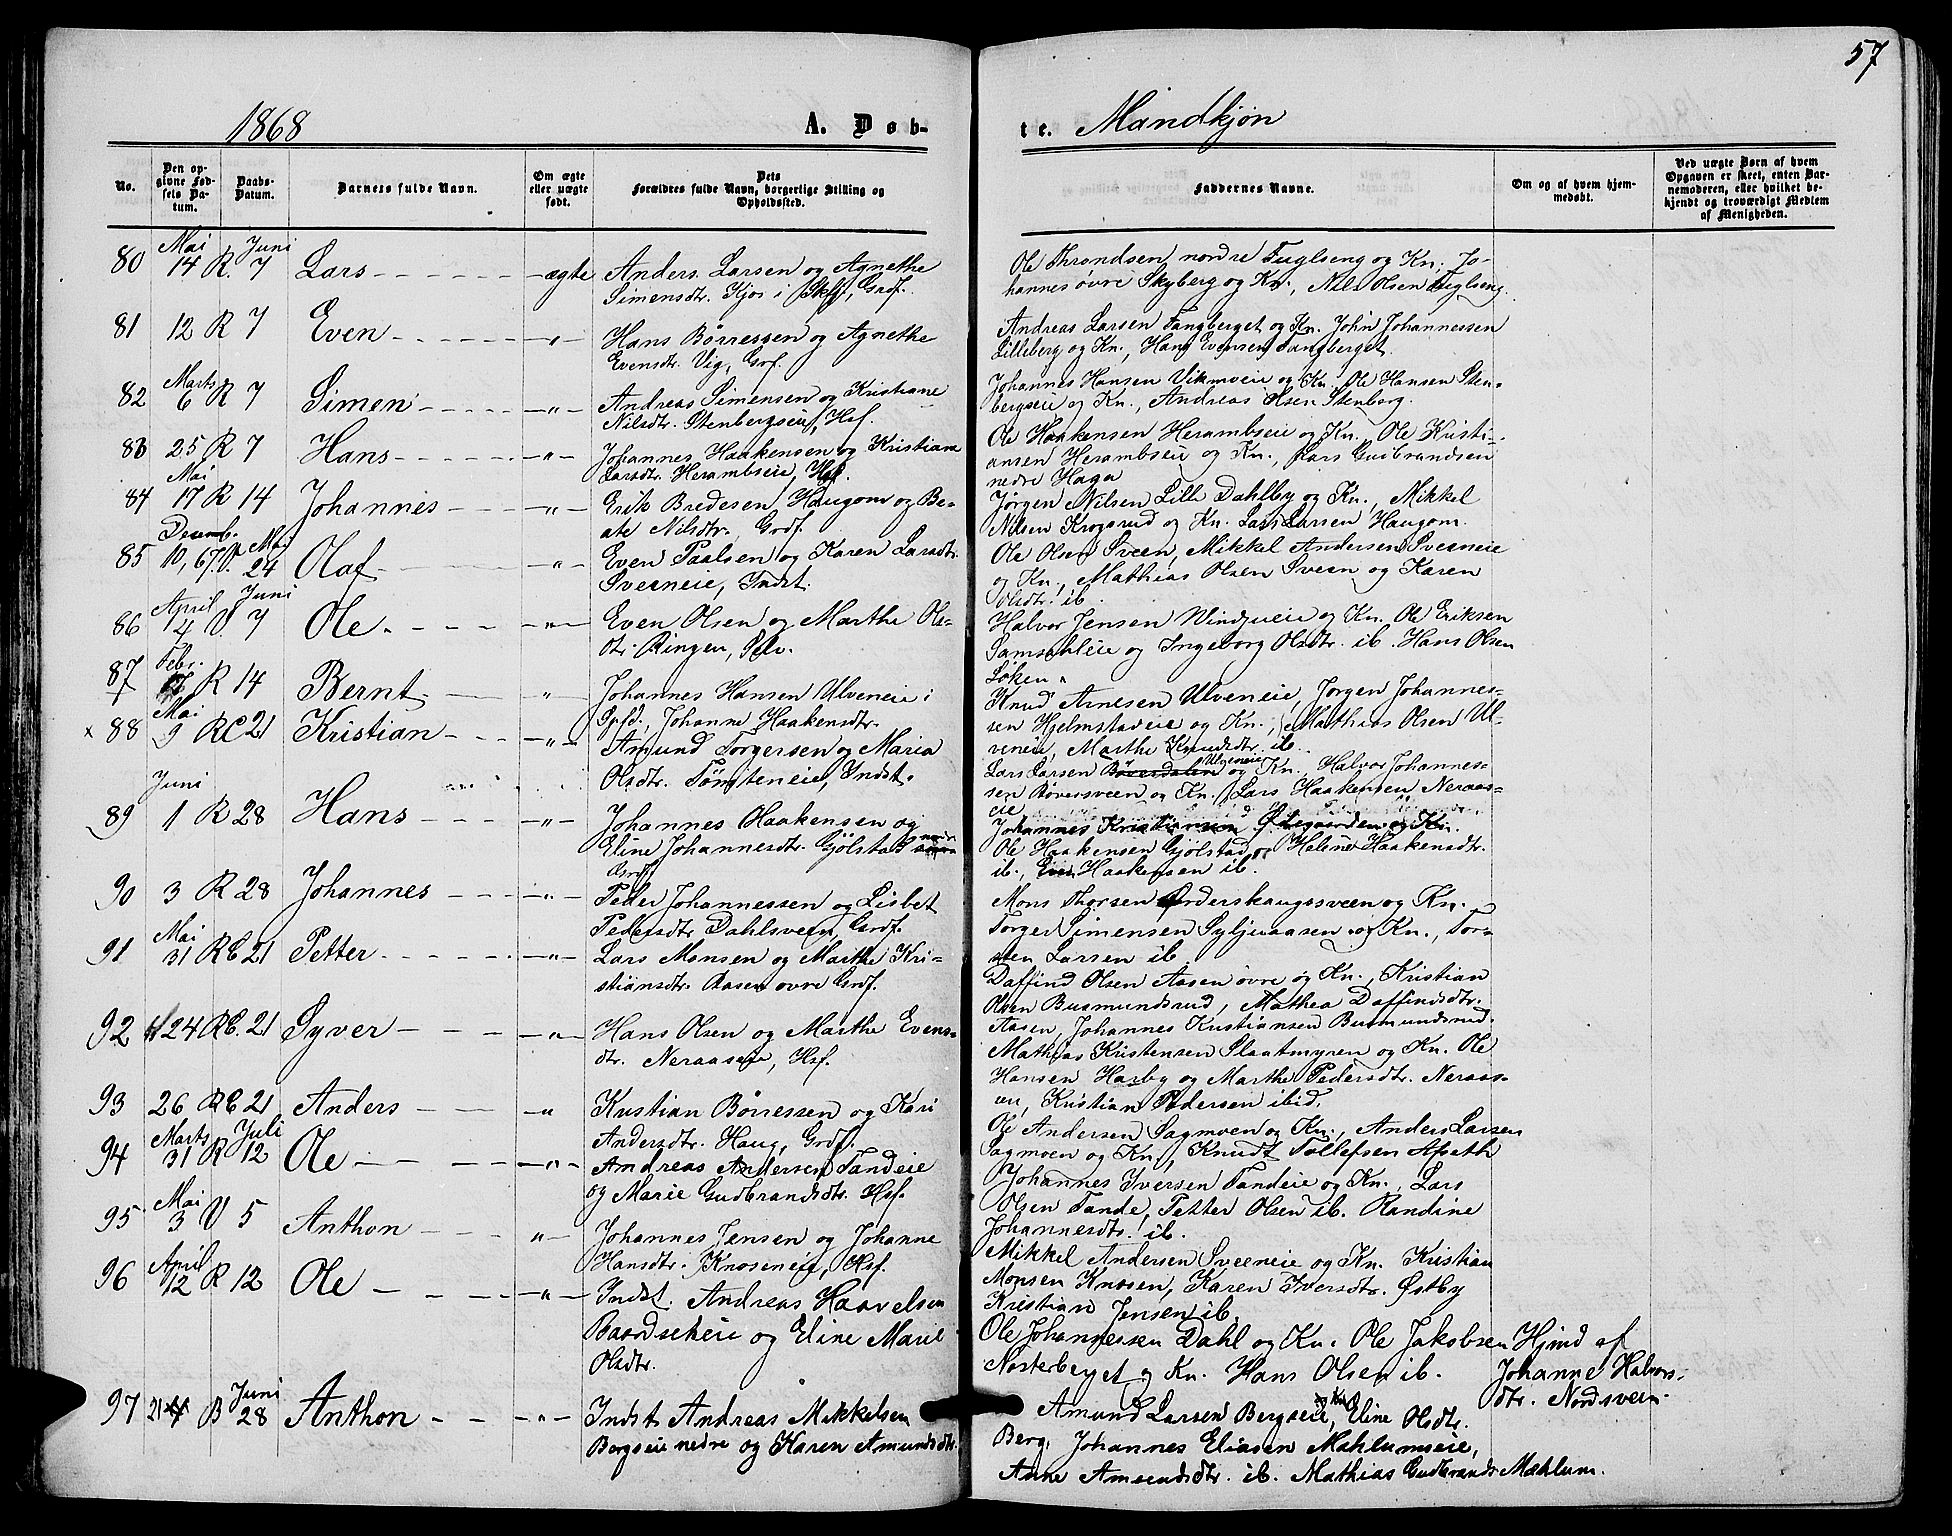 57
1868 A. Døb-
te. Mandkjøn
No.
Den op-
givne Fød-
sels Da-
tum.
Daabs-
Datum.
Barnets fulde Navn.
Om ægte
eller uægte
født.
Dets
Forældres fulde Navn, borgerlige Stilling og
Opholdssted.
Faddernes Navne.
Om og af hvem hjem-
medøbt.
Ved uægte Børn af hvem
Opgaven er skeet, enten Bar-
nemoderen, eller hvilket be-
kjendt og troværdigt Medlem
af Menigheden.
Mai Juni
80 14 R. 7 Lars ægte Anders Larsen og Agnethe
Simensdtr. Kjos i Grdf.
Ole Throndsen nordre Fuglseng og Kn., Jo-
hannes øvre Skyberg og Kn., Nils Olsen Fuglseng.
81 12 R 7 Even -"- Hans Børresen og Agnethe
Evensdtr. Vig, Grf.
Andreas Larsen Fangberget og Kn. John Johannessen
Lilleberg og Kn., Hans Evensen Fangberget.
Marts
82 6 R 7 Simen -"- Andreas Simensen og Kristiane
Nilsdtr. Stenbergseie, Hsf.
Johannes Hansen Vikmveie og Kn. Ole Hansen Sten-
bergseie og Kn., Andreas Olsen Stenberg.
83 25 R 7 Hans -"- Johannes Haakensen og Kristiane
Larsdtr. Herambseie, Hsf.
Ole Haakensen Herambseie og Kn., Ole Kristi-
ansen Herambseie og Kn., Lars Gudbrandsen
nedre Haga
Mai
84 17 R 14 Johannes -"- Erik Bredesen Haugom og Be-
ate Nilsdtr., Grdf.
Jørgen Nilsen Lille Dahlby og Kn., Mikkel
Nilsen Krogsrud og Kn. Lars Larsen Haugom.
Decemb. Mai
85 10, 67. V. 24 Olaf -"- Even Paalsen og Karen Larsdtr.
Sveeneie, Indst.
Ole Olsen Sveen, Mikkel Andersen Sveeneie
og Kn., Mathias Olsen Sveen og Karen
Olsdtr. ib.
April Juni
86 14 V. 7 Ole -"- Even Olsen og Marthe Ols-
dtr. Ringen, Selv.
Halvor Jensen Windjueie og Kn. Ole Eriksen
og Ingeborg Olsdtr. ib. Hans Olsen
Løken
Febr.
87 R 14 Bernt " Johannes Hansen Ulveneie i
Johanne Haakensdtr.
Knud Arnesen Ulveneie, Jørgen Johannes-
sen Hjelmstadeie og Kn., Mathias Olsen Ul-
veneie, Marthe Knudsdtr. ib.
Mai
x 88 9 RC 21 Kristian -"- Amund Torgersen og Maria
Olsdtr. Tømteneie, Indst.
Lars Larsen Ulveneie og Kn. Halvor Johannes-
sen Bøversveen og Kn., Lars Haakensen Neraas-
eie
Juni
89 1 R 28 Hans -"- Johannes Haakensen og
Eline Johannesdtr. Gjølstad nedre
Grdf.
Johannes Kristiansen Ølegaarden og Kn.
Ole Haakensen Gjølstad, Helene Haakensdtr.
ib., Even Haakensen ib.
90 3 R 28 Johannes -"- Peder Johannessen og Lisbet
Pedersdtr Dahlsveen, Grdf.
Mons Thorsen Ørderskaugssveen og Kn.
Torger Simensen Syljuaasen og Kn., Tor-
sten Larsen ib.
Mai
91 31 RC 21 Petter -"- Lars Monsen og Marthe Kri-
stiansdtr. Aasen øvre Grdf.
Daffind Olsen Aasen øvre og Kn., Kristian
Olsen Busmundsrud, Mathea Daffindsdtr.
Aasen, Johannes Kristiansen Busmundsrud.
92 24 RC. 21 Syver -"- Hans Olsen og Marthe Evens-
dtr. Neraasen, Hsf.
Mathias Kristensen Slaatmyren og Kn. Ole
Hansen Hasby og Marthe Pedersdtr. Neraas-
en, Kristian Pedersen ibid.
93 26 RC 21 Anders " Kristian Børresen og Kari
Andersdtr. Haug, Grdf.
Ole Andersen Sagmoen og Kn., Anders Larsen
Sagmoen og Kn., Knudt Tollefsen Afsæth
Marts Juli
94 31 R 12 Ole -"- Andreas Andersen Tandeie
og Marie Gudbrandsdtr. Hsf.
Johannes Iversen Tandeie og Kn., Lars
Olsen Tande, Petter Olsen ib. Randine
Johannesdtr. ib.
Mai
95 3 V 5 Anthon " Johannes Jensen og Johanne
Hansdtr. Knoseneie, Hsf.
Mikkel Andersen Sveeneie og Kn. Kristian
Monsen Knosen, Karen Iversdtr. Østby
Kristian Jensen ib.
April
96 12 R 12 Ole -"- Indst. Andreas Haavelsen
Baardseheie og Eline Marie
Olsdtr.
Ole Johannessen Dahl og Kn. Ole Jakobsen
Nosterberget og Kn. Hans Olsen ib.
Hjmd af
Johanne Halvors-
dtr. Nordsveen.
Juni
97 21 B 28 Anthon -"- Indst. Andreas Mikkelsen
Bergseie nedre og Karen Amundsdtr.
Amund Larsen Bergseie, og Kn. Eline Olsdtr.
Berg, Johannes Eliasen Mæhlumseie,
Anne Amundsdtr. ib. Mathias Gudbrands Mæhlum.